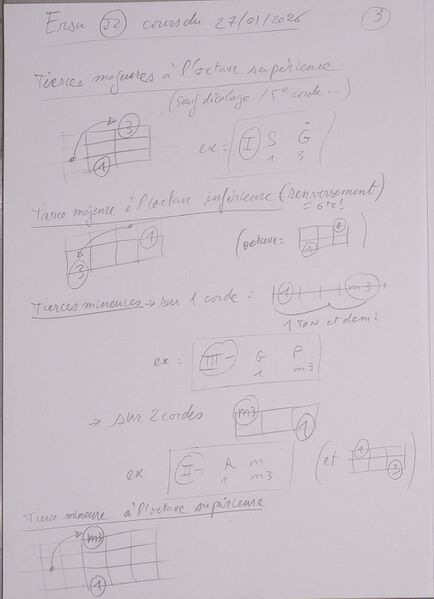 Ersu J2 cours du 27/01/2026
3
Tierces majeures à l'octave supérieure
(sauf décalage / 5e corde...)
3
1
ex = I S Ġ
1 3
Tierce majeure à l'octave inférieure (renversement)
= 6te!
3 1
(octave = 1 8)
Tierces mineures → sur 1 corde : 1 m3
1 Ton et demi
ex = III- G P
1 m3
→ sur 2 cordes m3 1
ex II- R m
1 m3
(et 1 3)
Tierce mineure à l'octave supérieure
m3
1